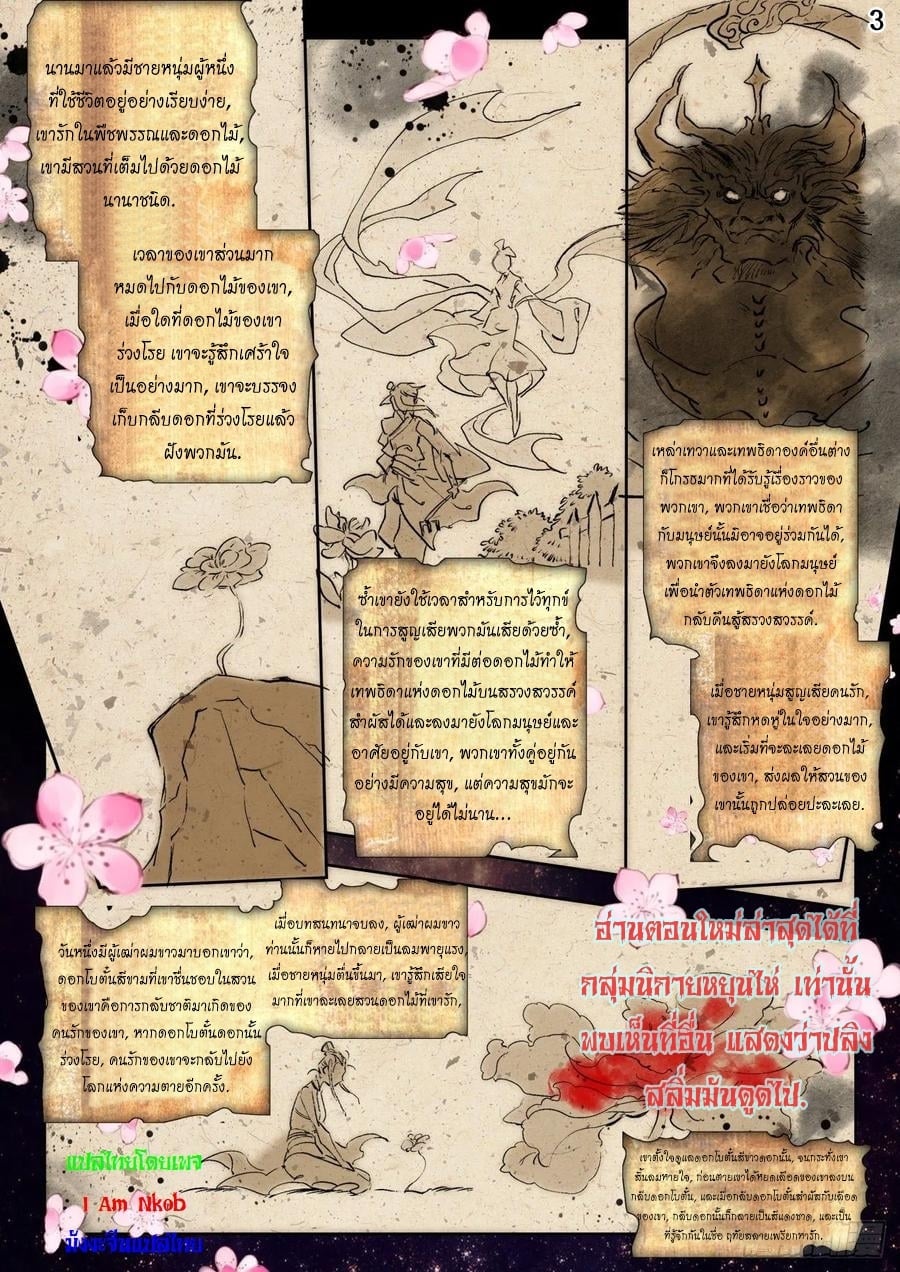 3
นานมาแล้วมีชายหนุ่มผู้หนึ่ง
ที่ใช้ชีวิตอยู่อย่างเรียบง่าย,
เขารักในพืชพรรณและดอกไม้,
เขามีสวนที่เต็มไปด้วยดอกไม้
นานาชนิด.
เวลาของเขาส่วนมาก
หมดไปกับดอกไม้ของเขา,
เมื่อใดที่ดอกไม้ของเขา
ร่วงโรย เขาจะรู้สึกเศร้าใจ
เป็นอย่างมาก, เขาจะบรรจง
เก็บกลีบดอกที่ร่วงโรยแล้ว
ฝังพวกมัน.
ซ้ำเขายังใช้เวลาสำหรับการไว้ทุกข์
ในการสูญเสียพวกมันเสียด้วยซ้ำ,
ความรักของเขาที่มีต่อดอกไม้ทำให้
เทพธิดาแห่งดอกไม้บนสรวงสวรรค์
สำผัสได้และลงมายังโลกมนุษย์และ
อาศัยอยู่กับเขา, พวกเขาทั้งคู่อยู่กัน
อย่างมีความสุข, แต่ความสุขมักจะ
อยู่ได้ไม่นาน...
เหล่าเทวาและเทพธิดาองค์อื่นต่าง
ก็โกรธมากที่ได้รับรู้เรื่องราวของ
พวกเขา, พวกเขาเชื่อว่าเทพธิดา
กับมนุษย์นั้นมิอาจอยู่ร่วมกันได้,
พวกเขาจึงลงมายังโลกมนุษย์
เพื่อนำตัวเทพธิดาแห่งดอกไม้
กลับคืนสู้สรวงสวรรค์.
เมื่อชายหนุ่มสูญเสียคนรัก,
เขารู้สึกหดหู่ในใจอย่างมาก,
และเริ่มที่จะละเลยดอกไม้
ของเขา, ส่งผลให้สวนของ
เขานั้นถูกปล่อยปะละเลย.
วันหนึ่งมีผู้เฒ่าผมขาวมาบอกเขาว่า,
ดอกโบตั๋นสีขามที่เขาชื่นชอบในสวน
ของเขาคือการกลับชาติมาเกิดของ
คนรักของเขา, หากดอกโบตั๋นดอกนั้น
ร่วงโรย, คนรักของเขาจะกลับไปยัง
โลกแห่งความตายอีกครั้ง.
เมื่อบทสนทนาจบลง, ผู้เฒ่าผมขาว
ท่านนั้นก็หายไปกลายเป็นลมพายุแรง,
เมื่อชายหนุ่มตื่นขึ้นมา, เขารู้สึกเสียใจ
มากที่เขาละเลยสวนดอกไม้ที่เขารัก,
อ่านตอนใหม่ล่าสุดได้ที่
กลุ่มนิกายหยุนไห่ เท่านั้น
พบเห็นที่อื่น แสดงว่าปลิง
สลิ่มมันดูดไป.
เขาตั้งใจดูแลดอกโบตั๋นสีขาวดอกนั้น, จนกระทั่งเขา
สิ้นลมหายใจ, ก่อนตายเขาได้หยดเลือดของเขาลงบน
กลีบดอกโบตั๋น, และเมื่อกลีบดอกโบตั๋นสำผัสกับเลือด
ของเขา, กลีบดอกนั้นก็กลายเป็นสีแดงชาด, และเป็น
ที่รู้จักกันในชื่อ ฤทัยสลายเพรียกหารัก.
แปลไทยโดยเพจ
I Am Nkob
มังงะจีนแปลไทย